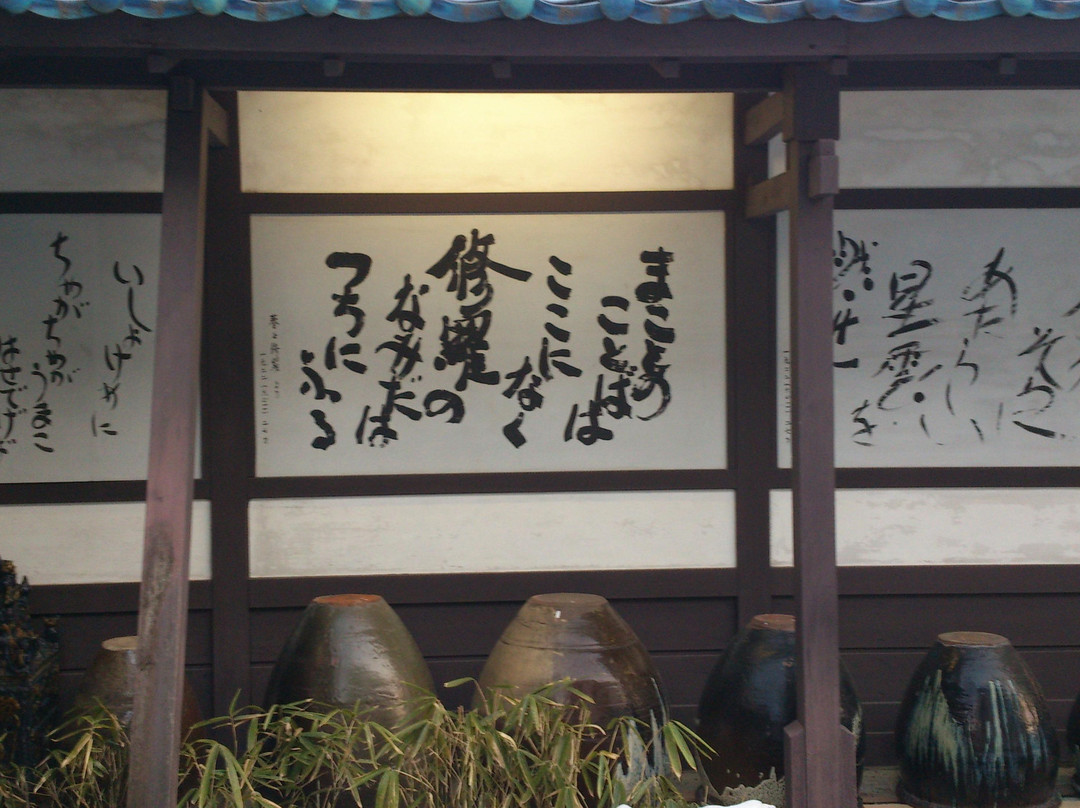 そらに
あたらしい
星雲を
まことの
ことばは
ここに
なく
修羅の
なみだは
つちに
ふる
春と修羅 より
いしょけめに
ちゃがちゃが
うまこ
はせでげば